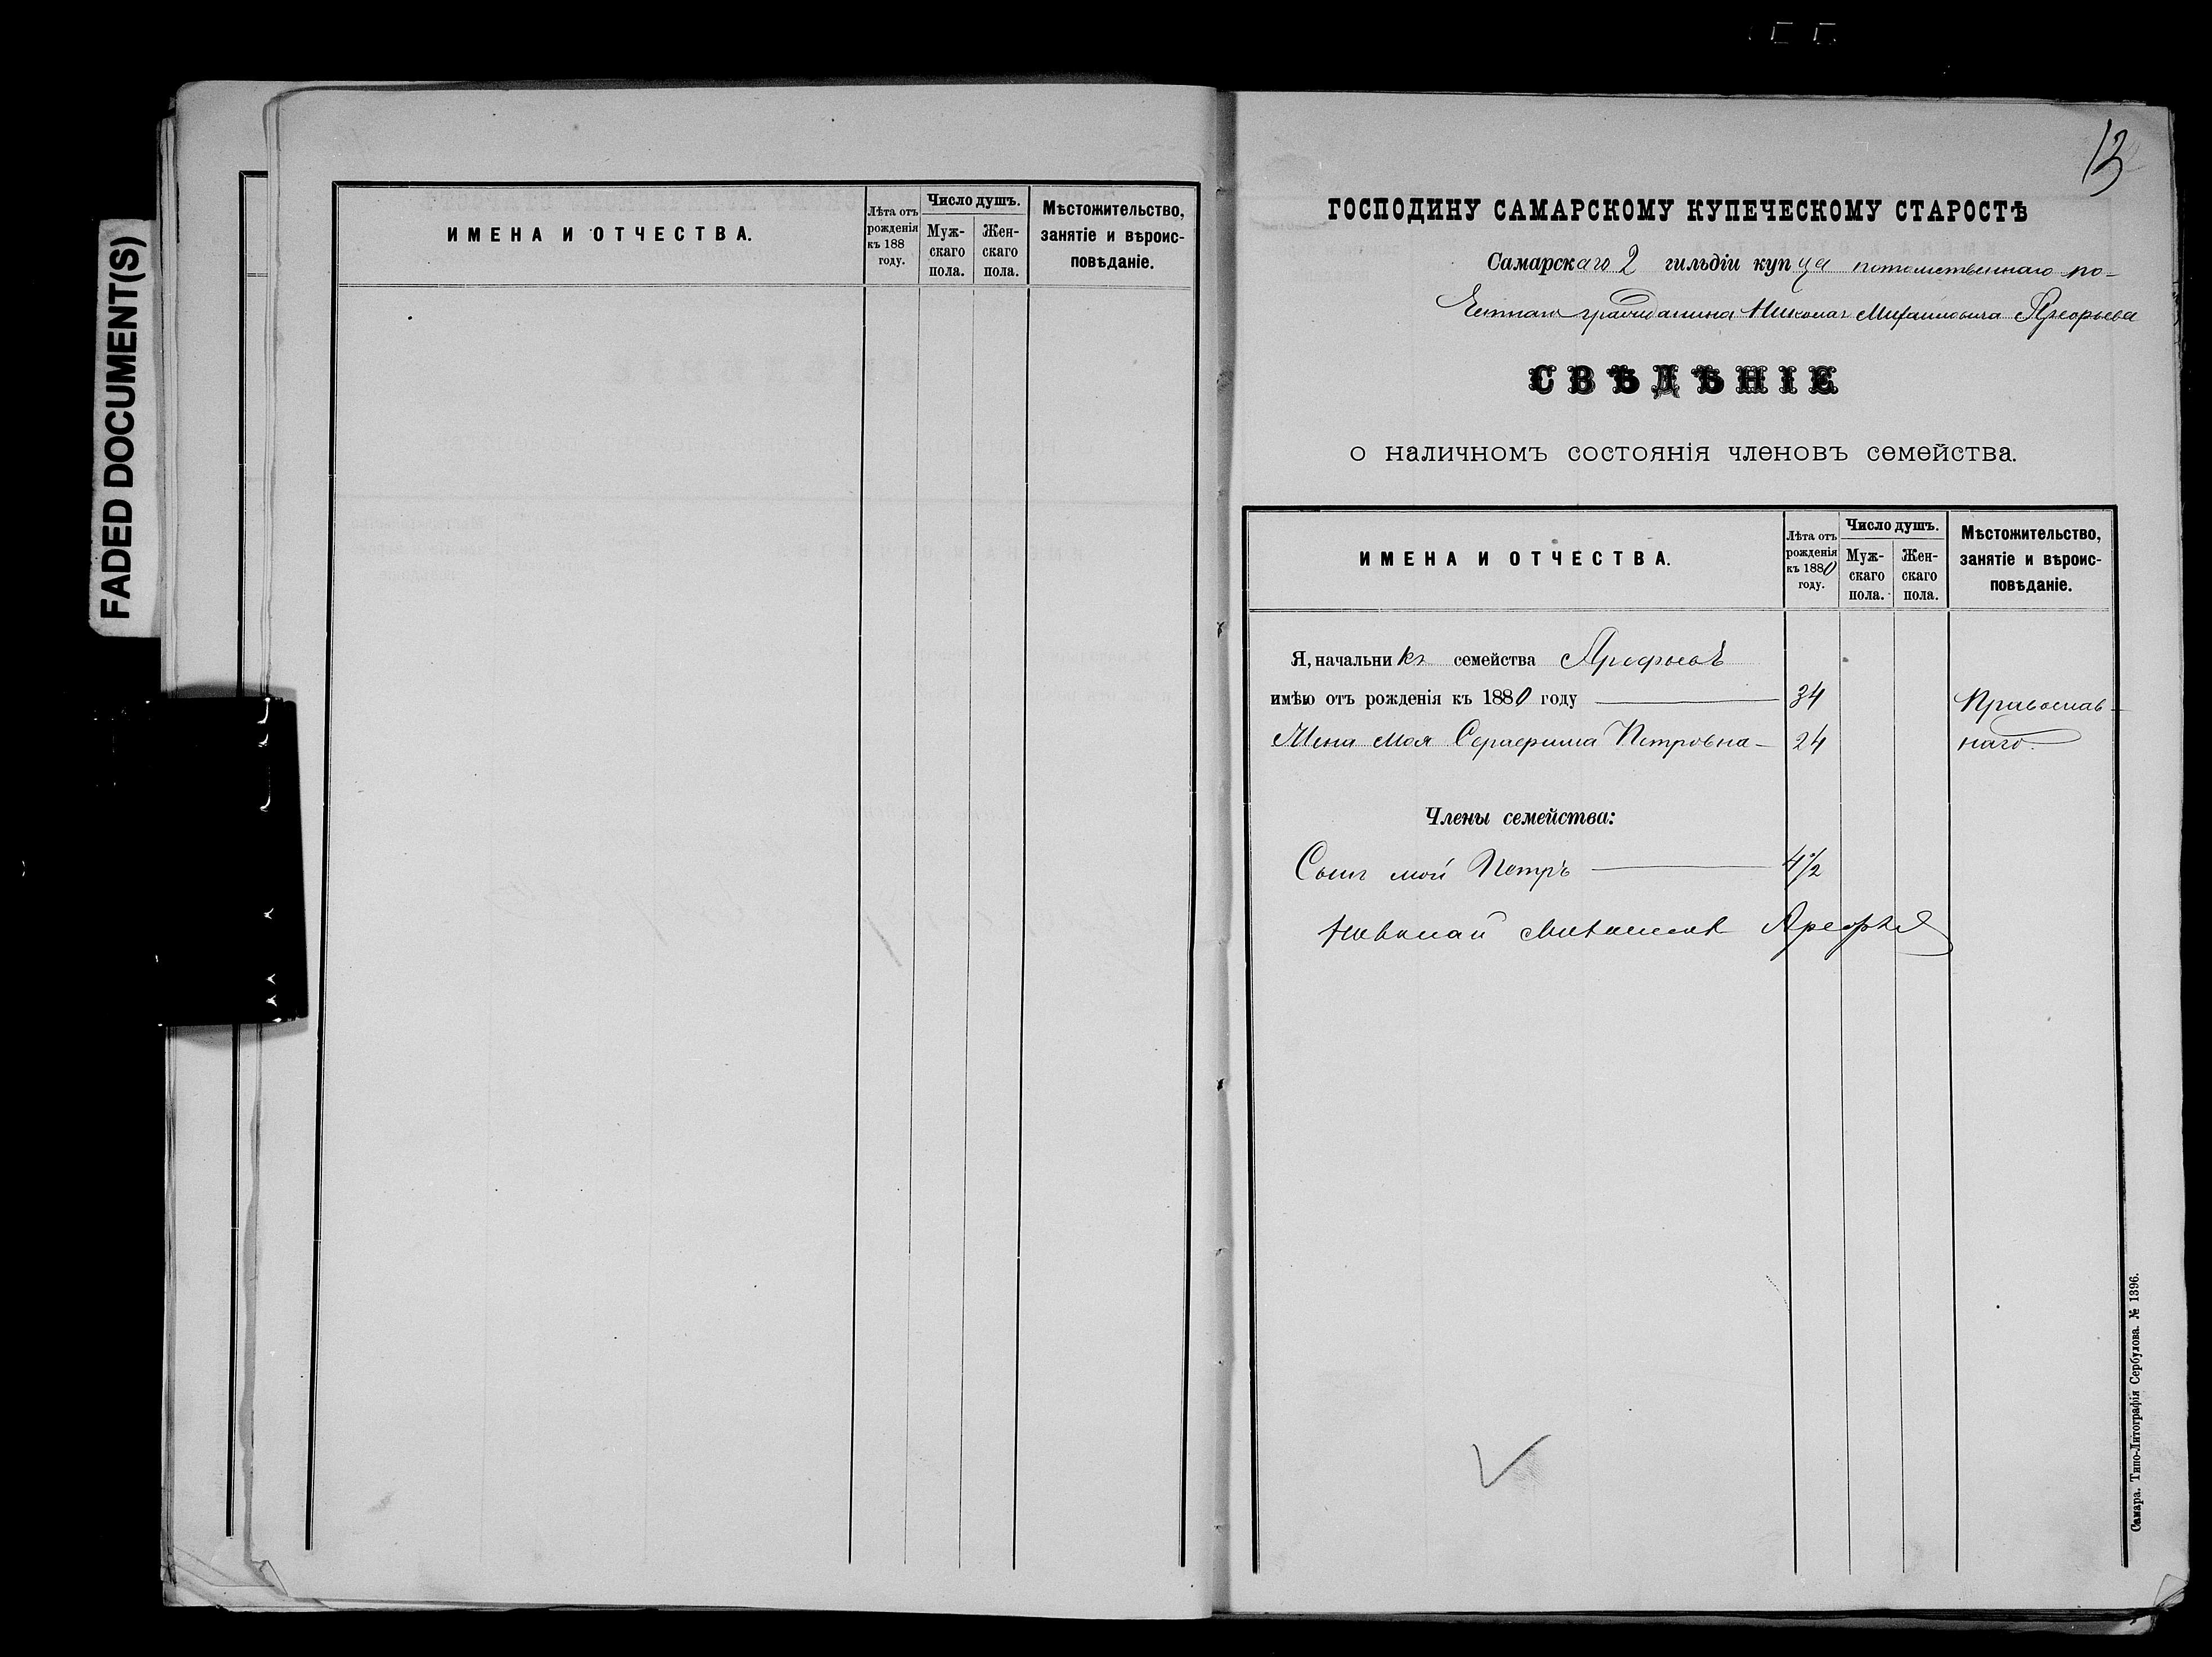 FADED DOCUMENT(S)
ИМЕНА И ОТЧЕСТВА.
Лѣта отъ рожденія къ 188 году.
Число душъ.
Мужскаго пола.
Женскаго пола.
Мѣстожительство, занятіе и вѣроисповѣданіе.
13
ГОСПОДИНУ САМАРСКОМУ КУПЕЧЕСКОМУ СТАРОСТѢ
Самарскаго 2 гильдіи купца потомственнаго по-
четнаго гражданина Николая Михайловича Арефьева
СВѢДѢНІЕ
о наличномъ состоянія членовъ семейства.
ИМЕНА И ОТЧЕСТВА.
Лѣта отъ рожденія къ 1880 году.
Число душъ.
Мужскаго пола.
Женскаго пола.
Мѣстожительство, занятіе и вѣроисповѣданіе.
Я, начальникъ семейства Арефьевъ
имѣю отъ рожденія къ 1880 году 34 Православ-
Жена моя Серафима Петровна 24 наго.
Члены семейства:
Сынъ мой Петръ 4½
Николай Михайлов Арефьев
Самара. Типо-Литографія Сербулова. № 1396.